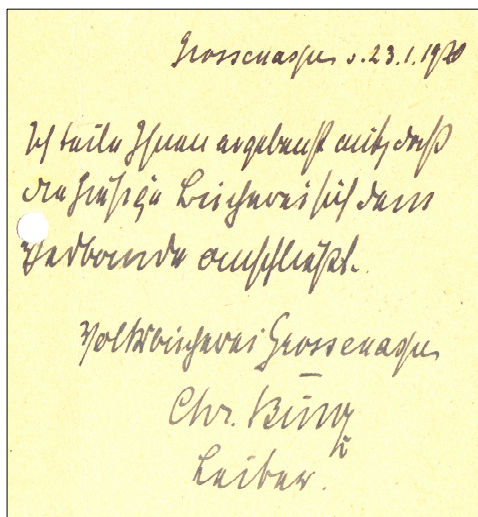 Grossenaspe d. 23.1.1920
Ich teile Ihnen ergebenst mit, daß
die hiesige Bücherei sich dem
Verbande anschließt.
Volksbücherei Grossenaspe
Chr.
Leiter.